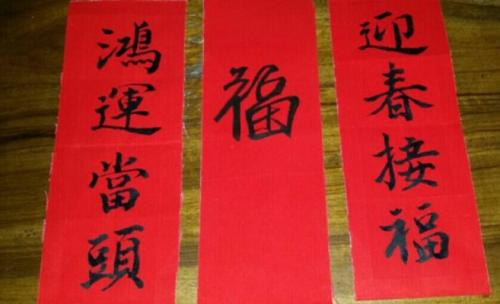 迎春接福
福
鴻運當頭